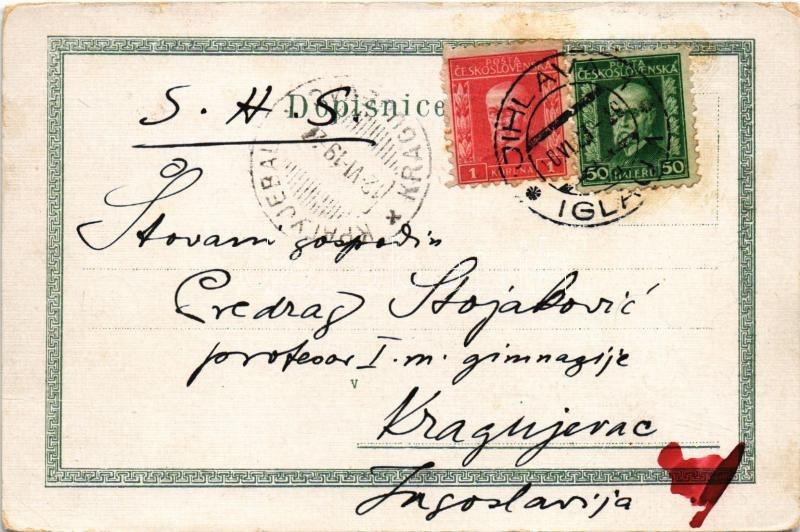 POŠTA
ČESKOSLOVENSKÁ
1 KORUNA 1
POŠTA
ČESKOSLOVENSKÁ
50 HALEŘŮ 50
JIHLAVA
IGLAU
Dopisnice
S. H. S.
12.VI.19
Štovani gospodin
Predrag Stojaković
profesor I. m. gimnazije
v
Kragujevac
Jugoslavija